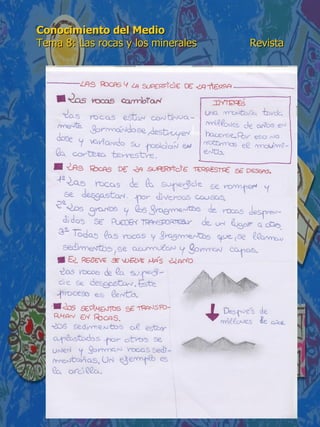 Conocimiento del Medio
Tema 8: Las rocas y los minerales Revista
LAS ROCAS Y LA SUPERFICIE DE LA TIERRA
Las rocas cambian
Las rocas están continua-
mente formandose, destruyen
dose y variando su posición en
la corteza terrestre.
INTERÉS
Una montaña tarda
millones de años en
hacerse. Por eso no
notamos el movimi-
ento.
LAS ROCAS DE LA SUPERFICIE TERRESTRE SE DESGAS.
1º Las rocas de la superficie se rompen y
se desgastan por diversas causas.
2º Los granos y los fragmentos de rocas despren-
didos SE PUEDEN TRANSPORTAR de un lugar a otro.
3º Todas las rocas y fragmentos que, se llaman
sedimentos, se acumulan y forman capas.
EL RELIEVE SE VUELVE MÁS LLANO
Las rocas de la superfi-
cie se desgastan. Este
proceso es lento.
LOS SEDIMENTOS SE TRANSFO-
RMAN EN ROCAS.
Los sedimentos al estar
aplastados por otros se
unen y forman rocas sedi-
mentarias. Un ejemplo es
la arcilla.
Después de
millones de años